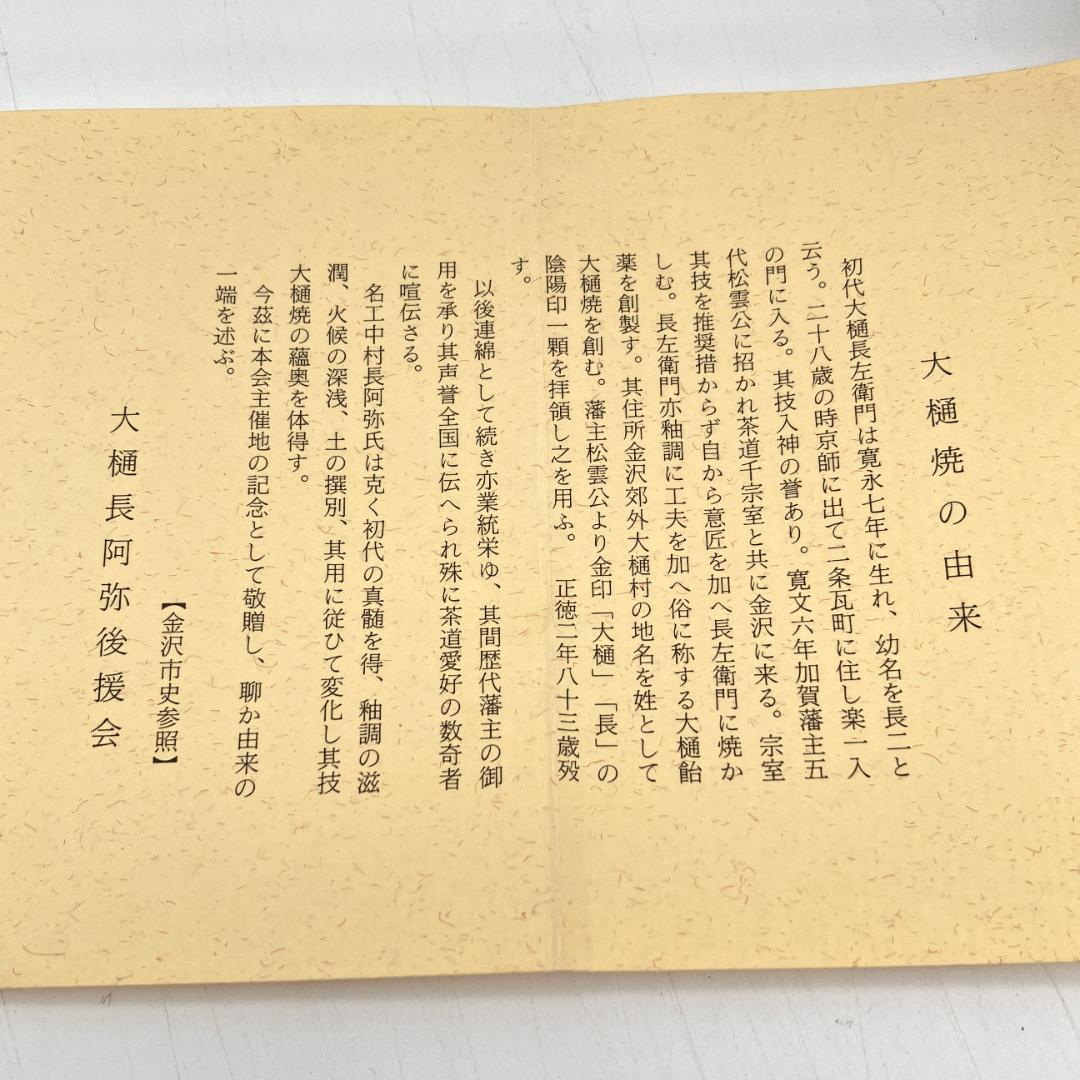 大樋焼の由来
初代大樋長左衛門は寛永七年に生れ、幼名を長二と
云う。二十八歳の時京師に出て二条瓦町に住し楽一入
の門に入る。其技入神の誉あり。寛文六年加賀藩主五
代松雲公に招かれ茶道千宗室と共に金沢に来る。宗室
其技を推奨措からず自から意匠を加へ長左衛門に焼か
しむ。長左衛門亦釉調に工夫を加へ俗に称する大樋飴
薬を創製す。其住所金沢郊外大樋村の地名を姓として
大樋焼を創む。藩主松雲公より金印「大樋」「長」の
陰陽印一顆を拝領し之を用ふ。　正徳二年八十三歳歿
す。
以後連綿として続き亦業統栄ゆ、其間歴代藩主の御
用を承り其声誉全国に伝へられ殊に茶道愛好の数奇者
に喧伝さる。
名工中村長阿弥氏は克く初代の真髄を得、釉調の滋
潤、火候の深浅、土の撰別、其用に従ひて変化し其技
大樋焼の蘊奥を体得す。
今茲に本会主催地の記念として敬贈し、聊か由来の
一端を述ぶ。
【金沢市史参照】
大樋長阿弥後援会